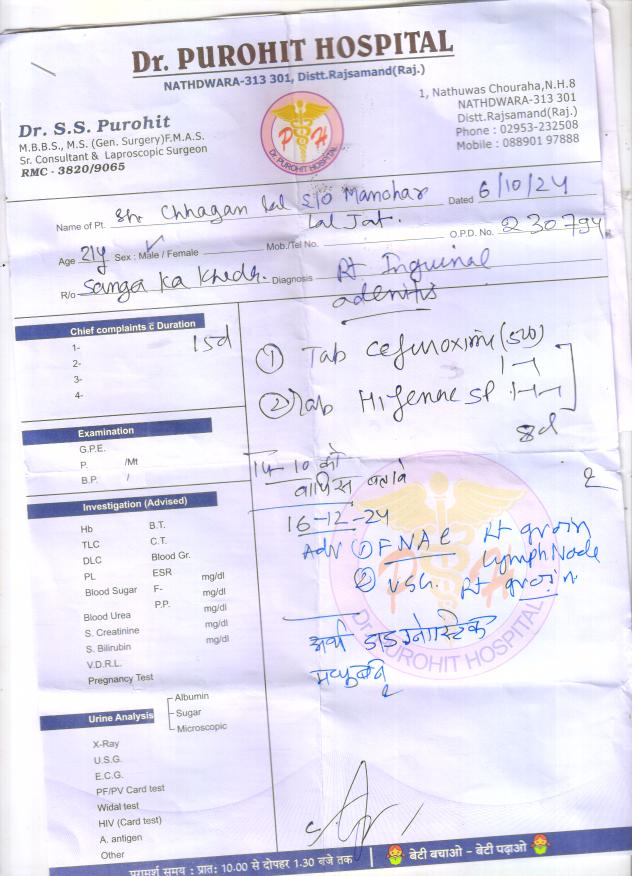 Dr. PUROHIT HOSPITAL
NATHDWARA-313 301, Distt.Rajsamand(Raj.)
Dr. S.S. Purohit
M.B.B.S., M.S. (Gen. Surgery)F.M.A.S.
Sr. Consultant & Laproscopic Surgeon
RMC - 3820/9065
P H
Dr. PUROHIT HOSPITAL
1, Nathuwas Chouraha,N.H.8
NATHDWARA-313 301
Distt.Rajsamand(Raj.)
Phone : 02953-232508
Mobile : 088901 97888
Name of Pt. Shr Chhagan lal S/O Manohar Dated 6/10/24
Lal Jat.
Age 21y Sex : Male / Female Mob./Tel No. O.P.D. No. 230794
R/o Sanga ka Kheda. Diagnosis Rt Inguinal
adenitis
Chief complaints c̄ Duration
1- 15d
2-
3-
4-
① Tab Cefuroxime (500)
② Tab Hifenac SP
8d
Examination
G.P.E.
P. /Mt
B.P. /
14-10 को
वापिस बतावे
Investigation (Advised)
Hb B.T.
TLC C.T.
DLC Blood Gr.
PL ESR
Blood Sugar F- mg/dl
P.P. mg/dl
Blood Urea mg/dl
S. Creatinine mg/dl
S. Bilirubin
V.D.R.L.
Pregnancy Test
16-12-24
Adv ① FNAC Rt groin
Lymph Node
② USG. Rt groin
डाइग्नोस्टिक
Dr. PUROHIT HOSPITAL
Urine Analysis
Albumin
Sugar
Microscopic
X-Ray
U.S.G.
E.C.G.
PF/PV Card test
Widal test
HIV (Card test)
A. antigen
Other
परामर्श समय : प्रातः 10.00 से दोपहर 1.30 बजे तक
बेटी बचाओ - बेटी पढ़ाओ